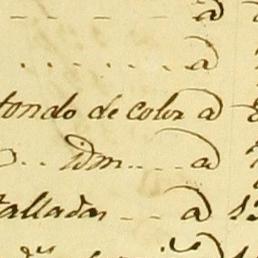 _ _ _ _ a
. . . . . . . . a
fondo de color a
. . idm . . . . a
talladas _ _ a